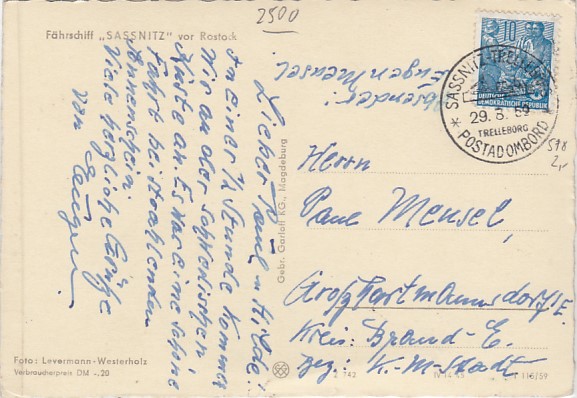 Fährschiff „SASSNITZ" vor Rostock
2500
Lieber Paul u. Hilde!
In einer ½ Stunde kommen
wir an der Schwedischen
Küste an. Es war eine schöne
Fahrt bei strahlenden
Sonnenschein.
Viele herzliche Grüße
von Eugen
Absender:
Eugen Mensel
10
DEUTSCHE
DEMOKRATISCHE REPUBLIK
SASSNITZ
29. 8. 59
TRELLEBORG
* POSTADOMBORD
578
2,-
Herrn
Paul Mensel,
Großhartmannsdorf/E.
Kreis: Brand-E.
Bez: K.-M-Stadt
Gebr. Garloff KG., Magdeburg
Foto: Levermann-Westerholz
Verbraucherpreis DM -.20
742